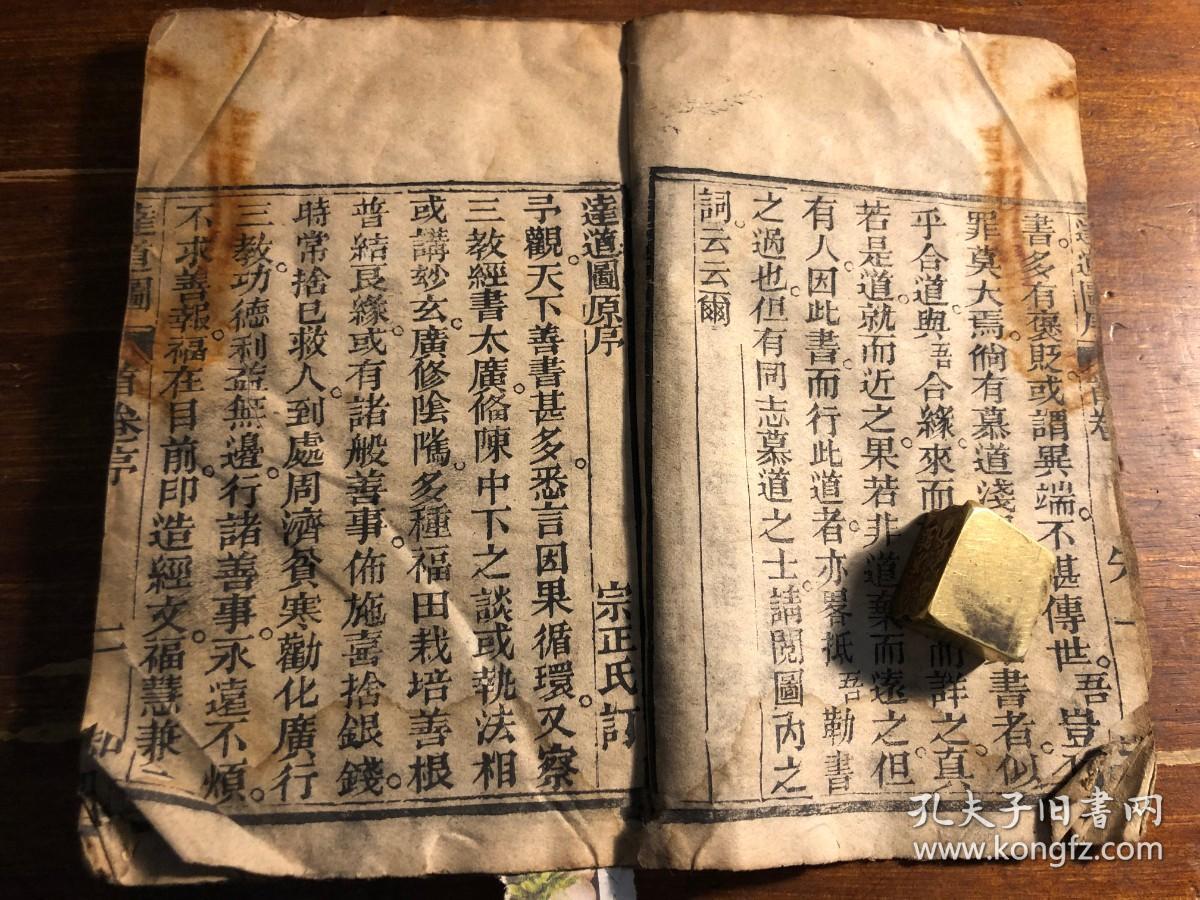 書。多有褒貶或謂異端。不甚傳世。吾豈
罪莫大焉。倘有慕道淺書者。似
乎合道與吾合緣。來而而詳之。真
若是道。就而近之。果若非道。棄而遠之。但
有人因此書。而行此道者。亦畧抵吾勒書
之過也。但有同志慕道之士。請閱圖內之
詞。云云爾
達道圖原序
宗正氏訂
予觀。天下善書甚多。悉言因果循環。又察
三教經書太廣。俻陳中下之談。或執法相
或講妙玄。廣修陰隲。多種福田。栽培善根
普結良緣。或有諸般善事。佈施喜捨銀錢。
時常捨己救人。到處周濟貧寒。勸化廣行
三教。功德利益無邊。行諸善事。永遠不煩。
不求善報。福在目前。印造經文。福慧兼
達道圖 首卷序 二
孔夫子旧书网
www.kongfz.com